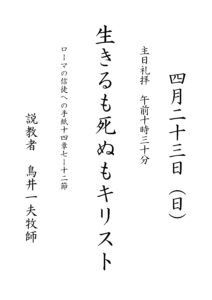 四月二十三日（日）
主日礼拝　午前十時三十分
生きるも死ぬもキリスト
ローマの信徒への手紙十四章七ー十二節
説教者　鳥井一夫牧師